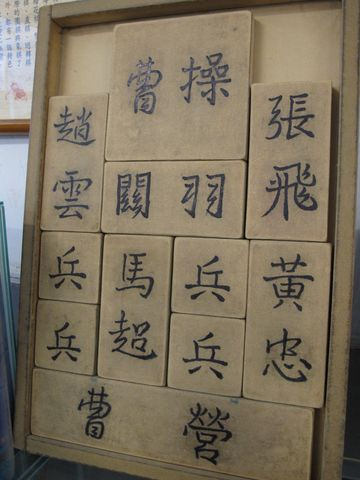 曹操
趙雲
張飛
關羽
兵
兵
馬超
兵
兵
黃忠
曹營